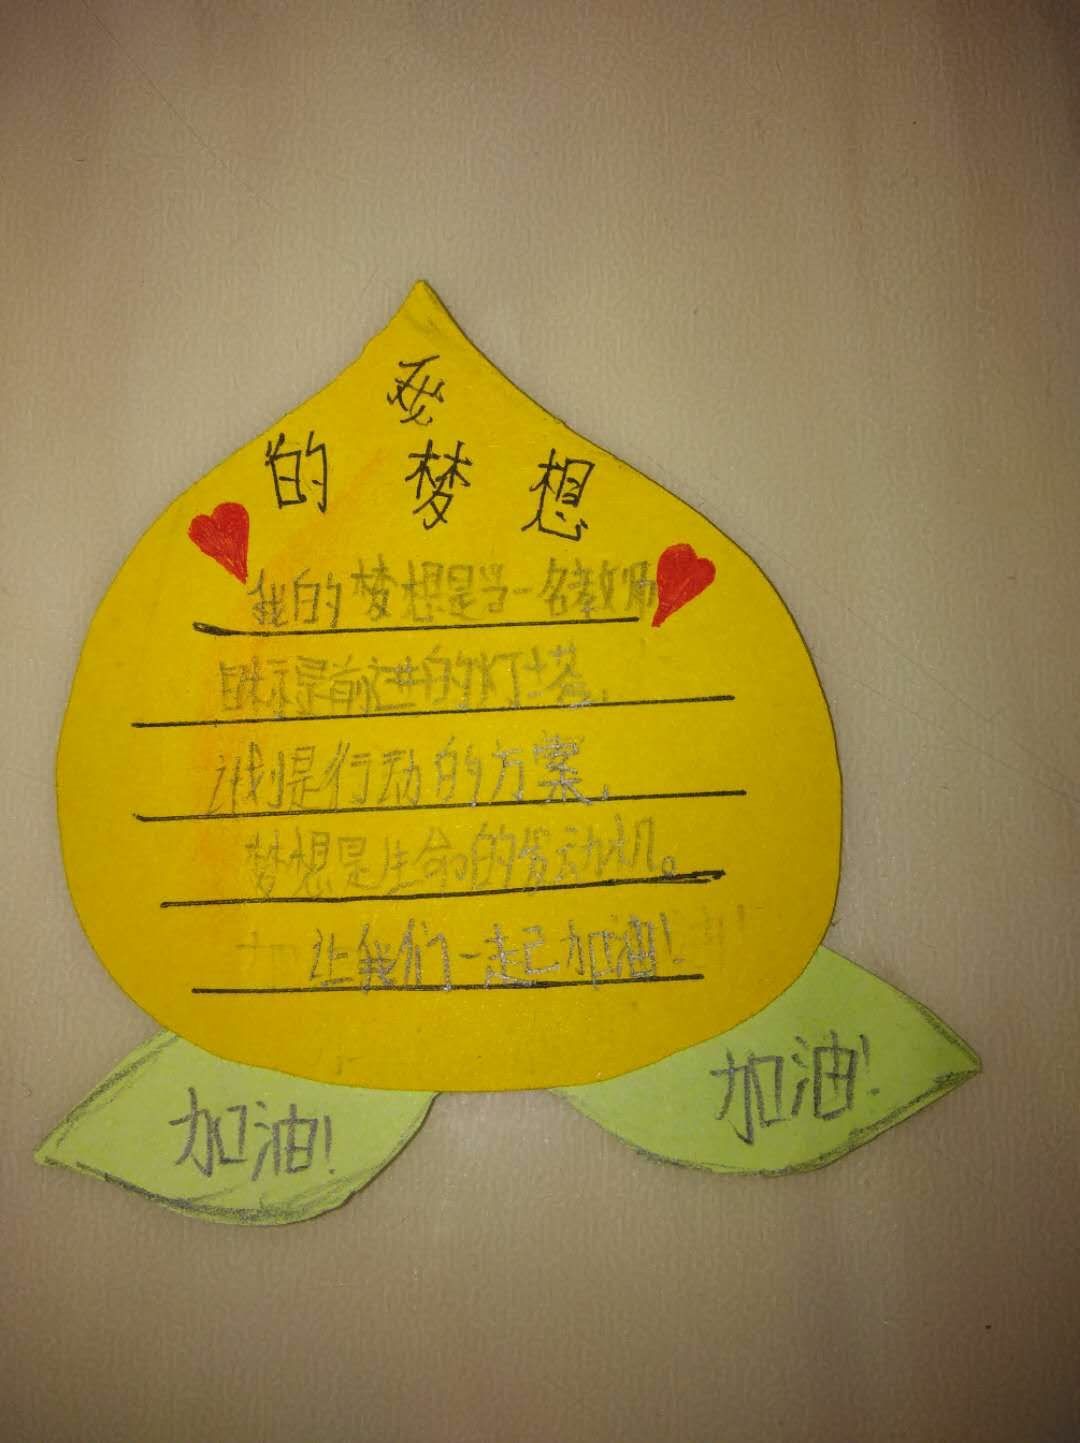 我
的梦想
我的梦想是当一名教师
目标是前进的灯塔,
计划是行动的方案,
梦想是生命的发动机。
让我们一起加油!
加油!
加油!